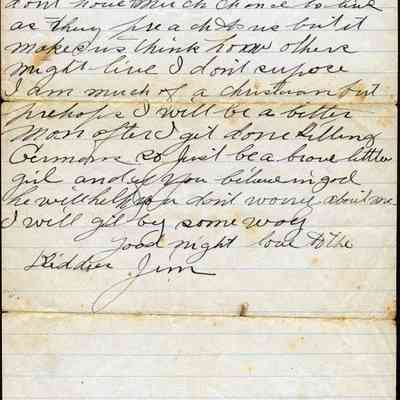 dont have much chance to live
as they preach to us but it
makes us think how others
might live I dont supose
I am much of a christian but
prehaps I will be a better
Man after I get done Killing
Germans so Just be a brave little
girl and if you believe in god
he will help you dont worry about me
I will git by some way
Good night love to the
Kiddies Jim